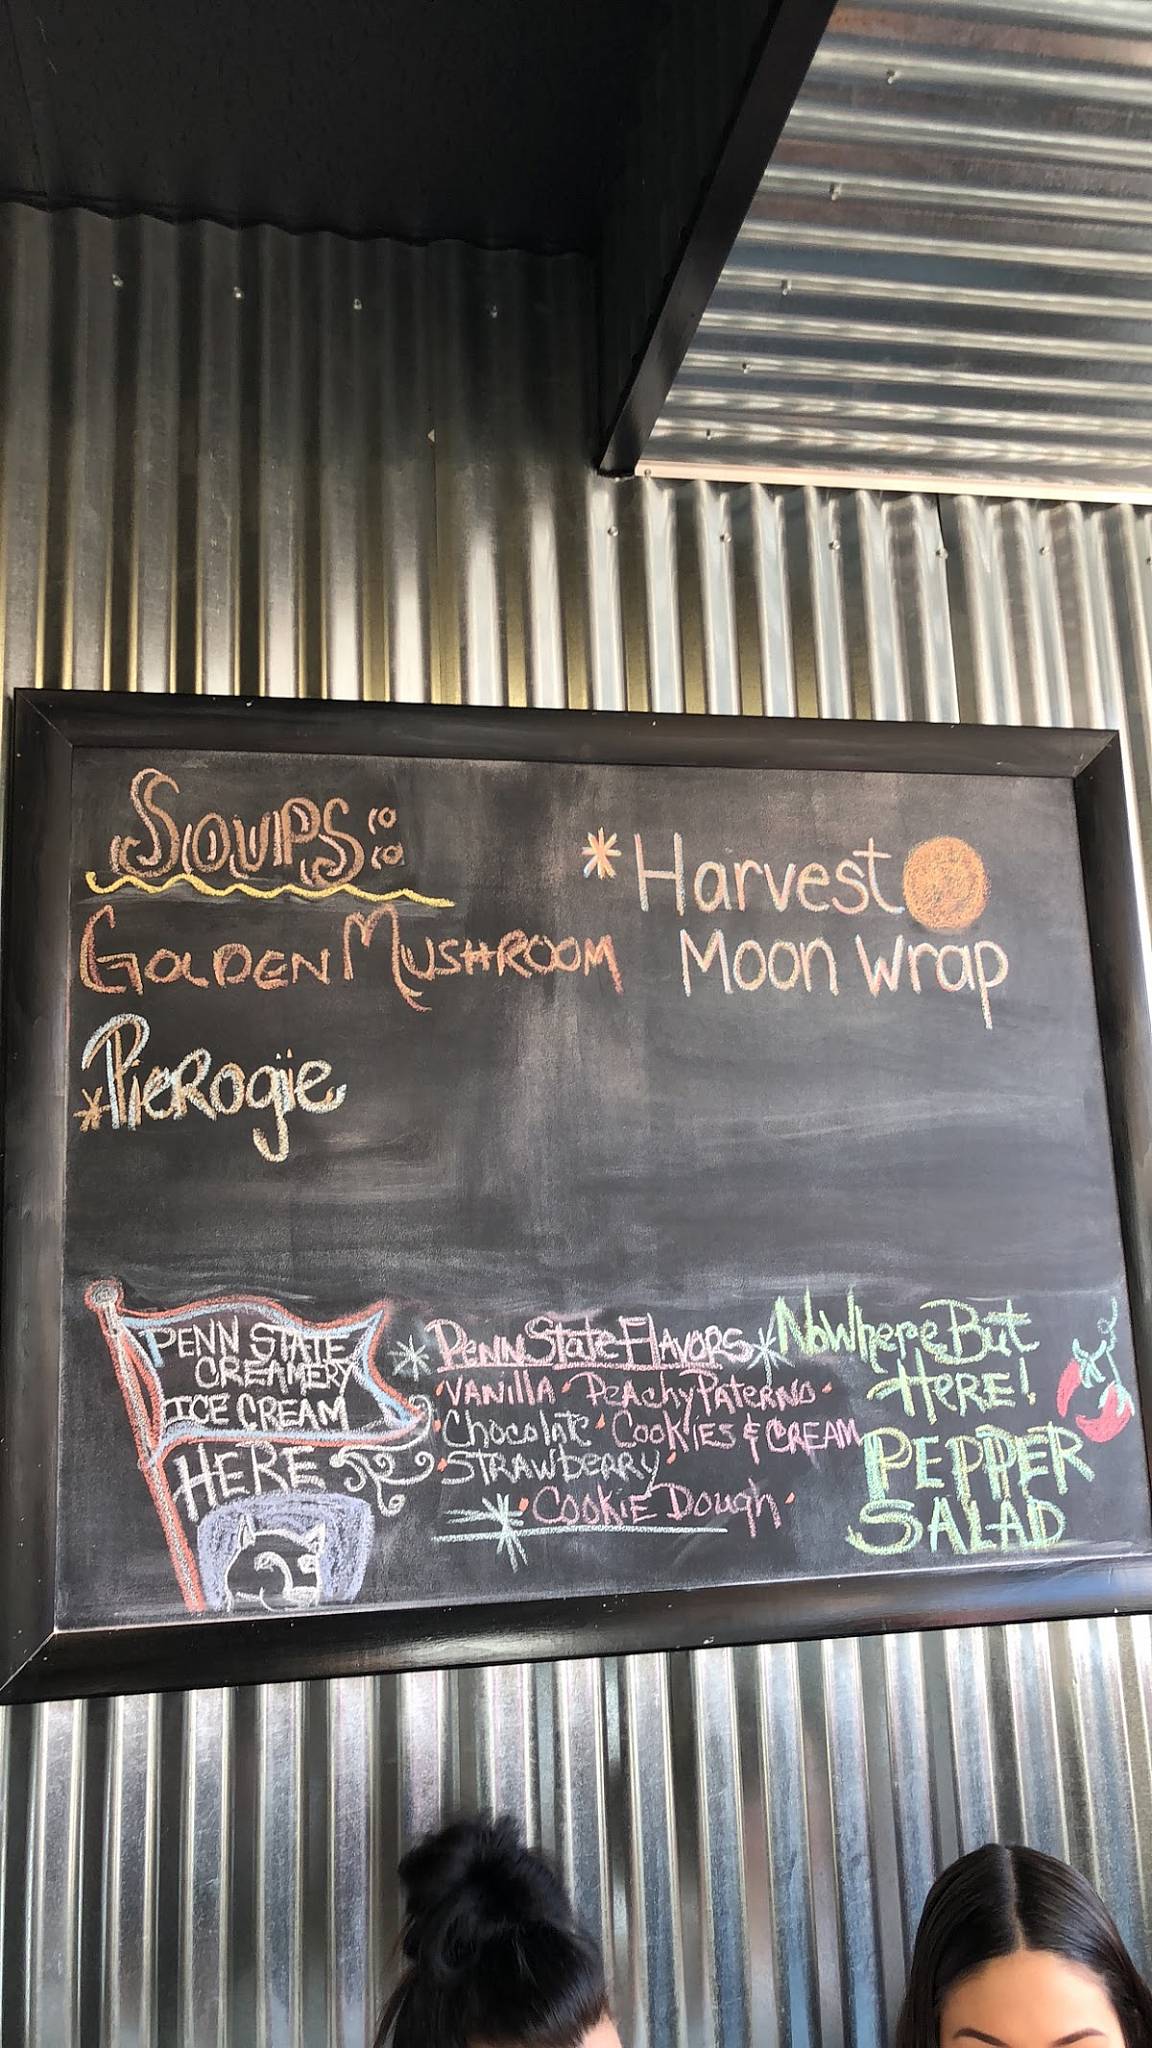 SOUPS:
GOLDEN MUSHROOM
*PIEROGIE
*Harvest
Moon Wrap
PENN STATE
CREAMERY
ICE CREAM
HERE
*PENN STATE FLAVORS*
·VANILLA·PEACHY PATERNO·
·CHOCOLATE·COOKIES & CREAM
·STRAWBERRY·
·COOKIE DOUGH·
NOWHERE BUT
HERE!
PEPPER
SALAD